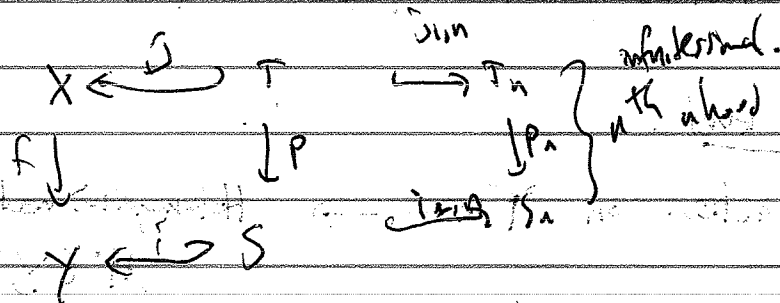 X j T j₁,ₙ Tₙ infinitesimal
f p pₙ nth nhood
Y i S i₁,ₙ Sₙ